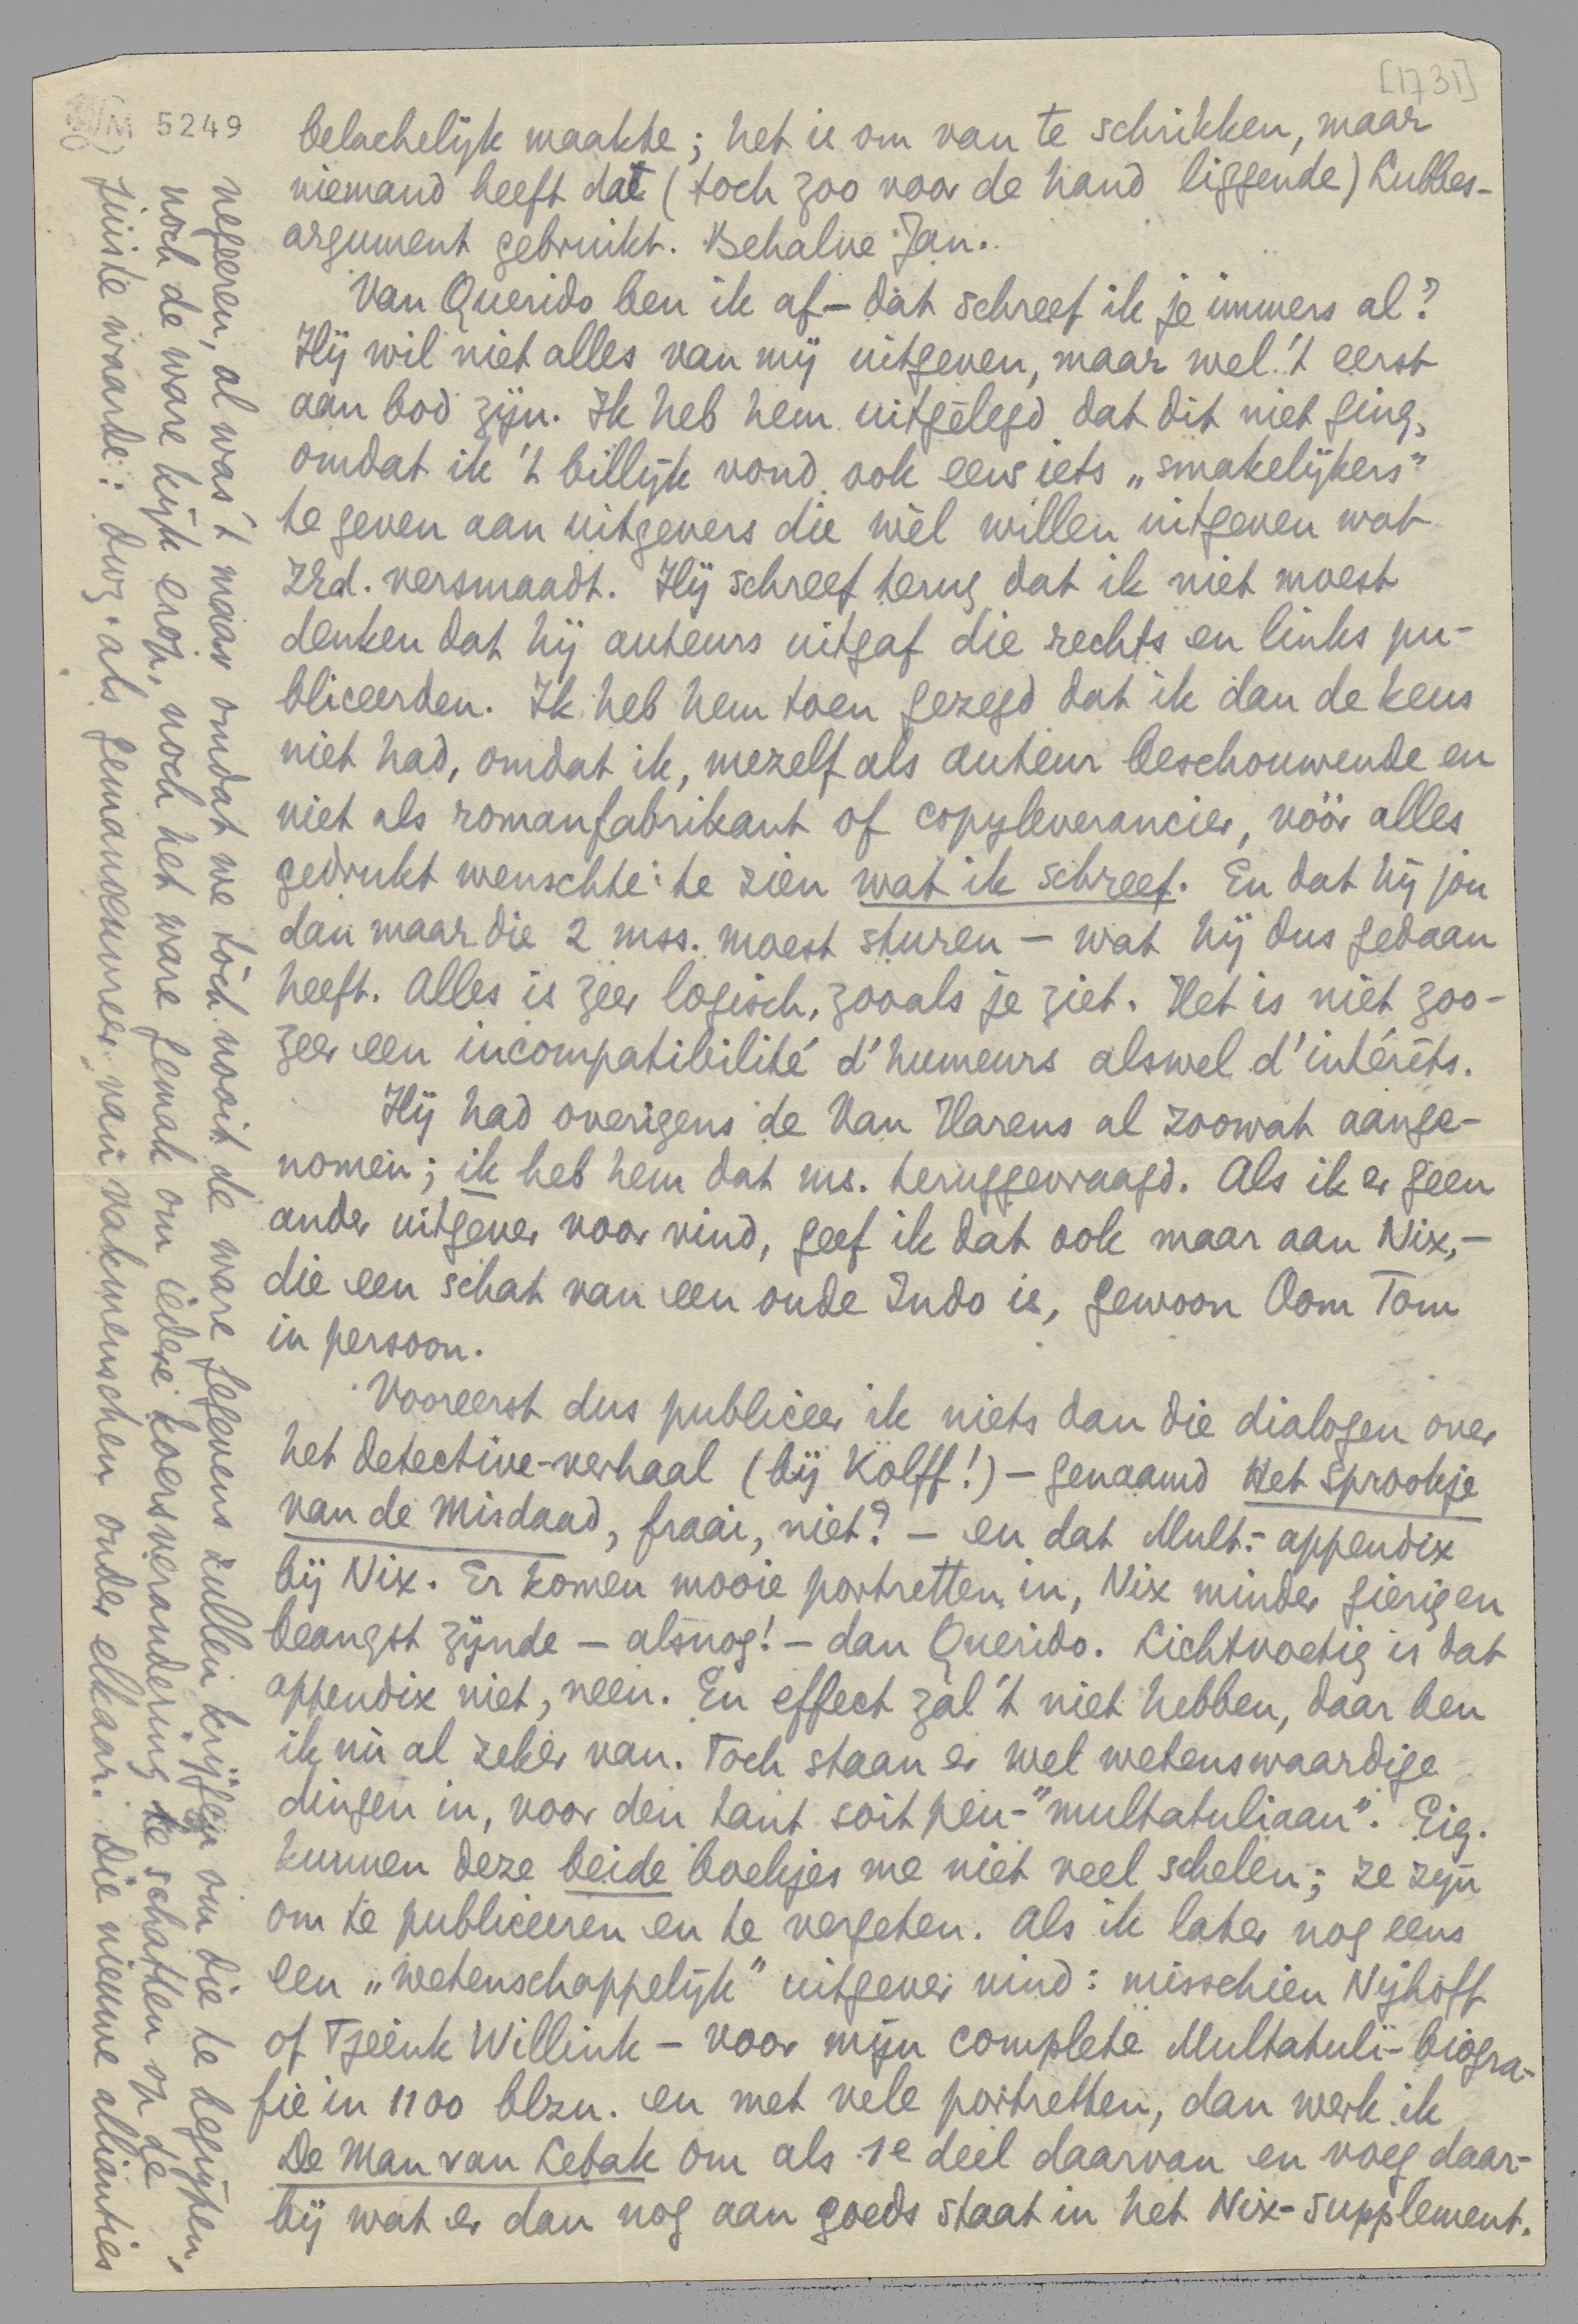 [1731]
LM 5249
belachelijk maakte; het is om van te schrikken, maar
niemand heeft dat (toch zoo voor de hand liggende) Lubbes-
argument gebruikt. Behalve Jan.
Van Querido ben ik af – dat schreef ik je immers al?
Hij wil niet alles van mij uitgeven, maar wel 't eerst
aan bod zijn. Ik heb hem uitgelegd dat dit niet ging,
omdat ik 't billijk vond ook eens iets „smakelijkers"
te geven aan uitgevers die wèl willen uitgeven wat
ZEd. versmaadt. Hij schreef terug dat ik niet moest
denken dat hij auteurs uitgaf die rechts en links pu-
bliceerden. Ik heb hem toen gezegd dat ik dan de keus
niet had, omdat ik, mezelf als auteur beschouwende en
niet als romanfabrikant of copyleverancier, vóór alles
gedrukt wenschte te zien wat ik schreef. En dat hij jou
dan maar die 2 mss. moest sturen – wat hij dus gedaan
heeft. Alles is zeer logisch, zooals je ziet. Het is niet zoo-
zeer een incompatibilité d'humeurs alswel d'intérêts.
Hij had overigens de Van Harens al zoowat aange-
nomen; ik heb hem dat ms. teruggevraagd. Als ik er geen
ander uitgever voor vind, geef ik dat ook maar aan Nix, –
die een schat van een oude Indo is, gewoon Oom Tom
in persoon.
Vooreerst dus publiceer ik niets dan die dialogen over
het detective-verhaal (bij Kolff!) – genaamd Het Sprookje
van de Misdaad, fraai, niet? – en dat Mult.-appendix
bij Nix. Er komen mooie portretten in, Nix minder gierig en
beangst zijnde – alsnog! – dan Querido. Lichtvoetig is dat
appendix niet, neen. En effect zal 't niet hebben, daar ben
ik nù al zeker van. Toch staan er wel wetenswaardige
dingen in, voor den tant soit peu-"multatuliaan". Eig.
kunnen deze beide boekjes me niet veel schelen; ze zijn
om te publiceeren en te vergeten. Als ik later nog eens
een „wetenschappelijk" uitgever vind: misschien Nijhoff
of Tjeenk Willink – voor mijn complete Multatuli-biogra-
fie in 1100 blzn. en met vele portretten, dan werk ik
De Man van Lebak om als 1e deel daarvan en voeg daar-
bij wat er dan nog aan goeds staat in het Nix-supplement.
negeren, al was 't maar omdat we tòch nooit de ware gegevens zullen krijgen om die te begrijpen,
noch de ware kijk erop, noch het ware gemak om iedere koersverandering te schatten op de
juiste waarde: dwz. als gemanoeuvreer van vakmenschen onder elkaar. Die nieuwe allianties